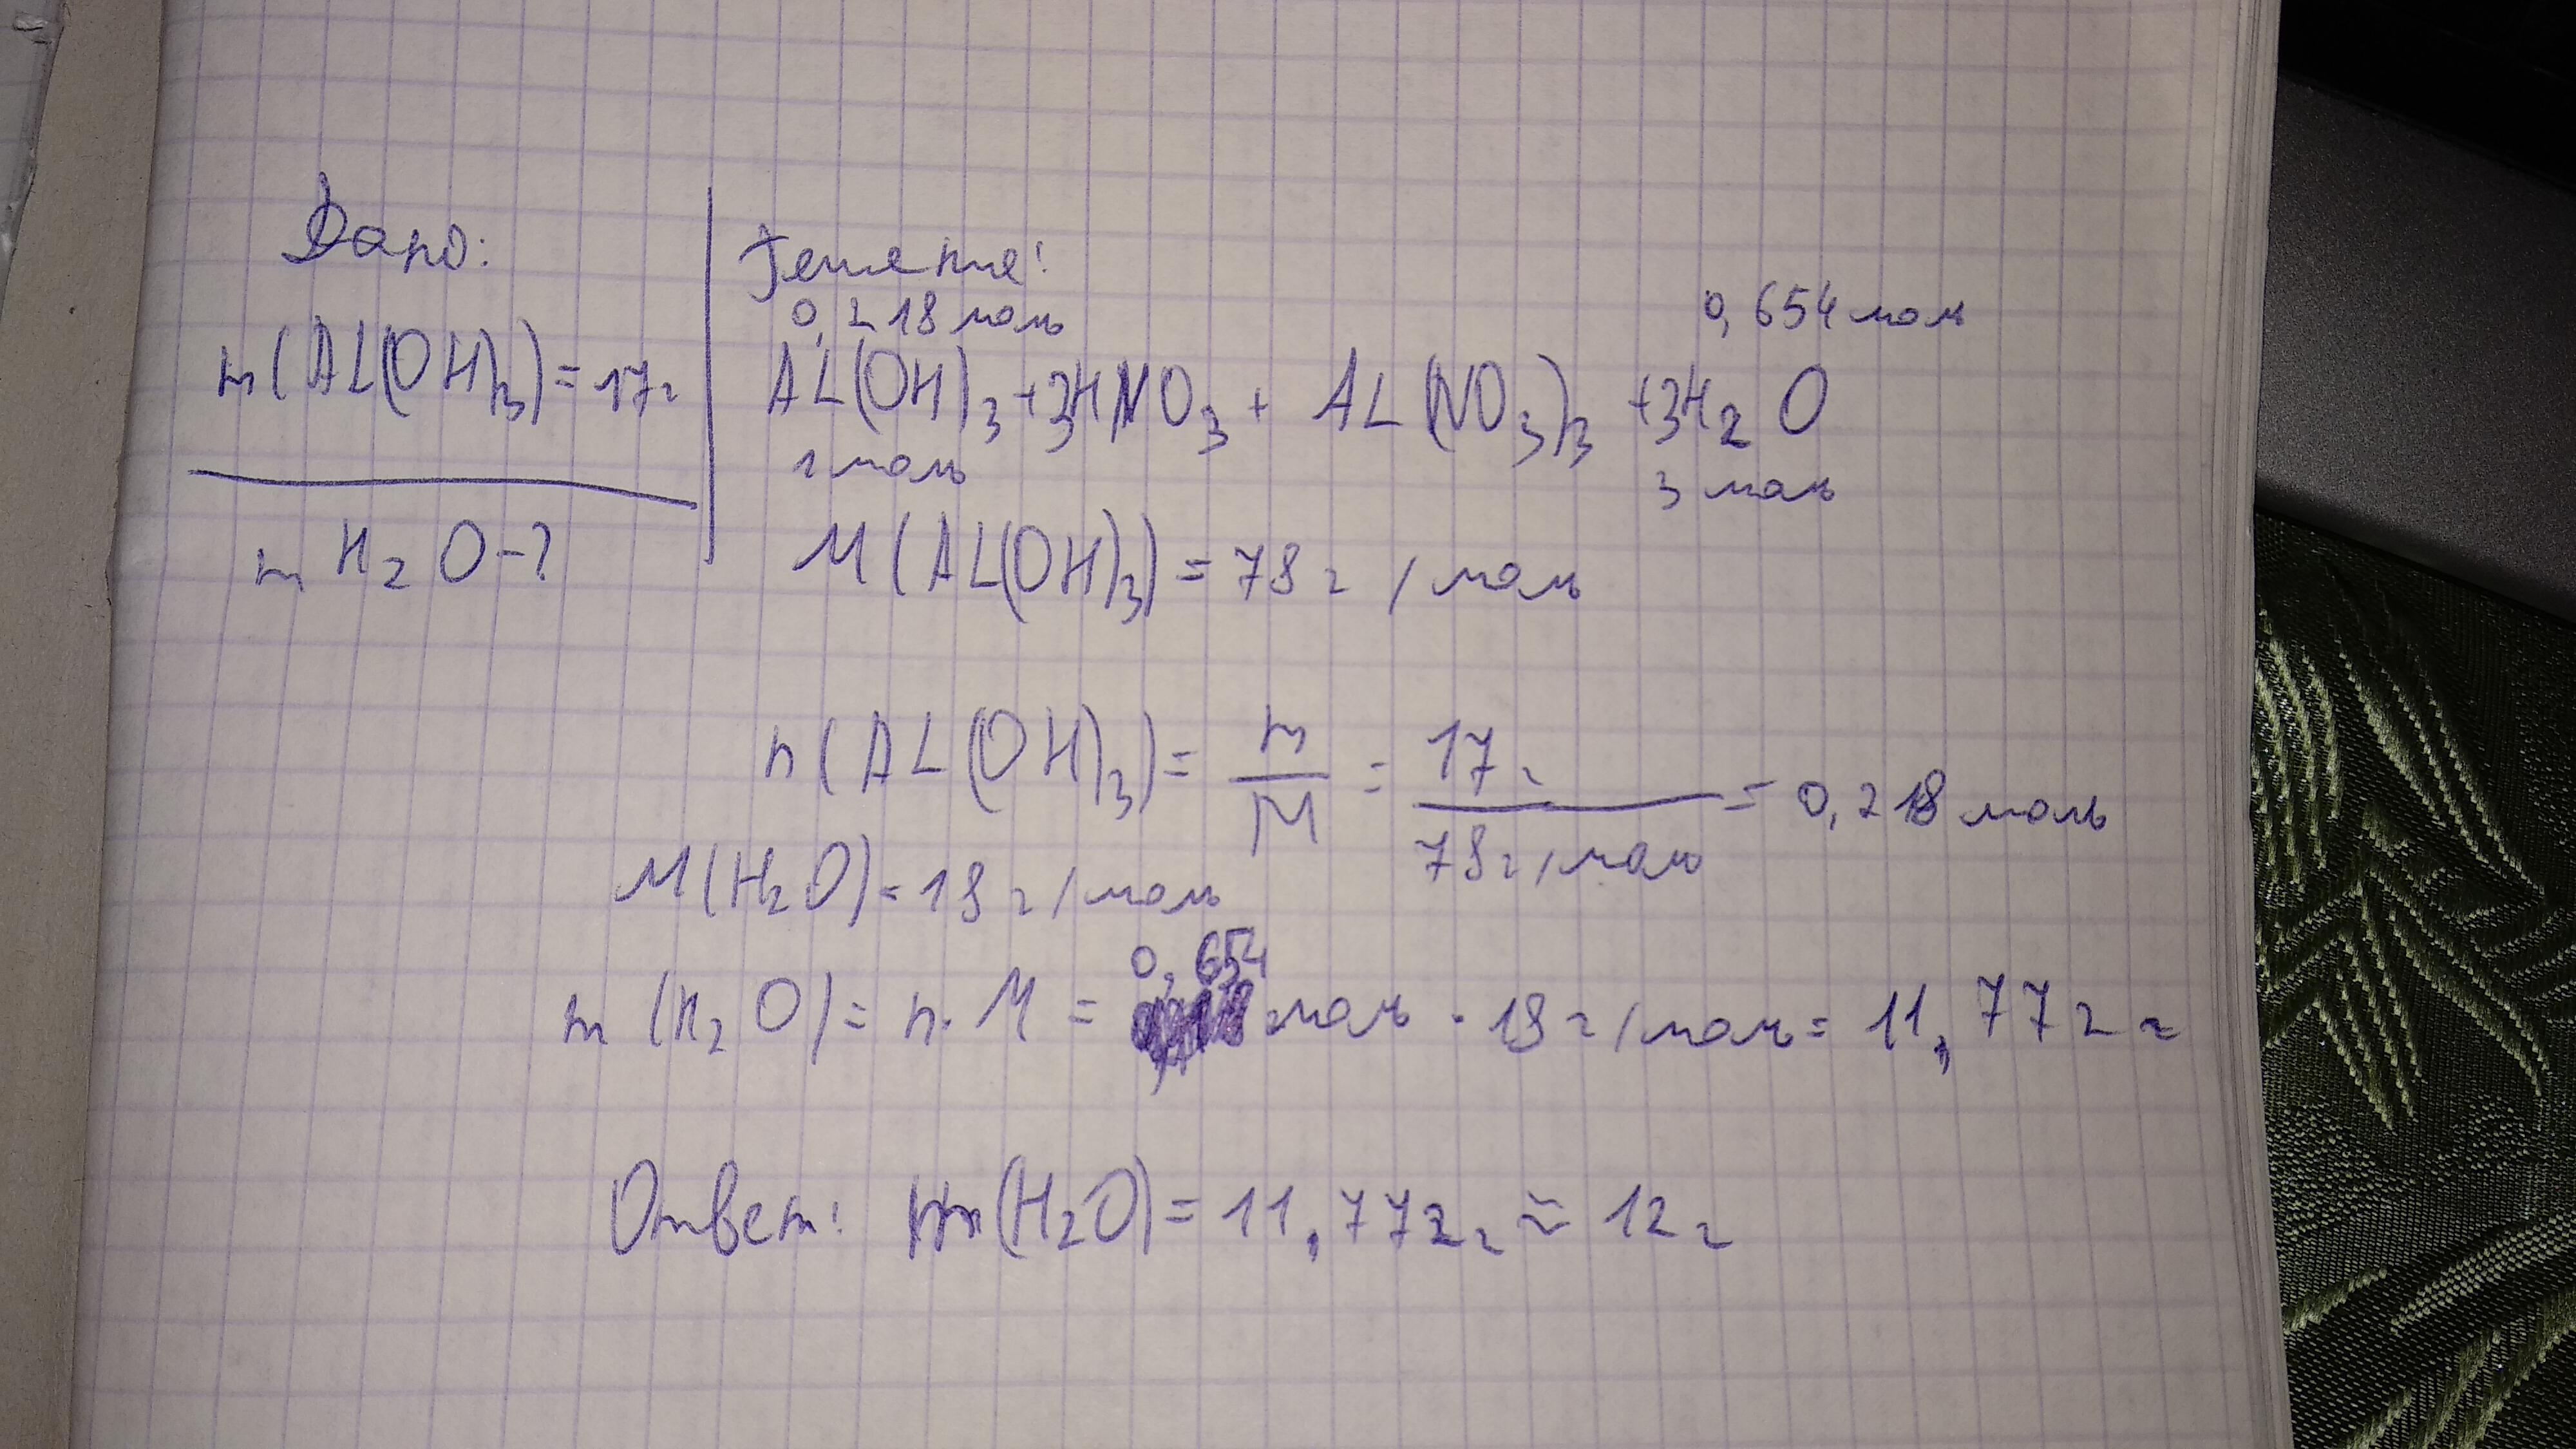 Дано:
m(AL(OH)3)=17г
m H2O-?
Решение:
0,218 моль
0,654 моль
AL(OH)3+3HNO3+ AL(NO3)3 +3H2O
1 моль
3 моль
M(AL(OH)3)=78г/моль
n(AL(OH)3)= m/M = 17г/78г/моль = 0,218 моль
M(H2O)=18г/моль
0,654
m(H2O)=n·M= моль·18г/моль=11,772г
Ответ: m(H2O)=11,772г≈12г